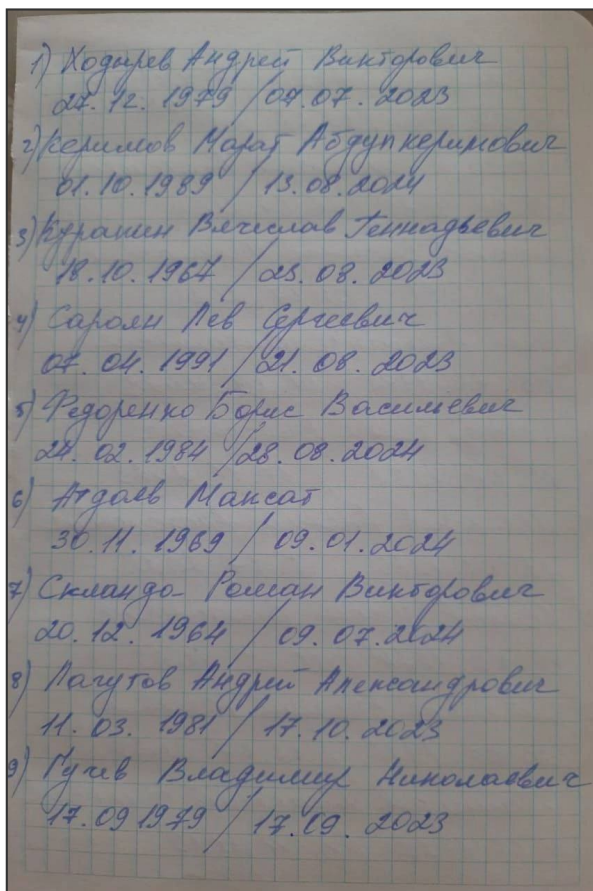 1) Ходырев Андрей Викторович
27.12.1979 / 07.07.2023
2) Керимов Марат Абдулкеримович
01.10.1989 / 13.08.2024
3) Куракин Вячеслав Геннадьевич
18.10.1967 / 23.08.2023
4) Сароян Лев Сергеевич
07.04.1991 / 21.08.2023
5) Федоренко Борис Васильевич
24.02.1984 / 28.08.2024
6) Атдаев Максат
30.11.1969 / 09.01.2024
7) Скландо Роман Викторович
20.12.1964 / 09.07.2024
8) Лагутов Андрей Александрович
11.03.1981 / 17.10.2023
9) Гучев Владимир Николаевич
17.09 1979 / 17.09.2023